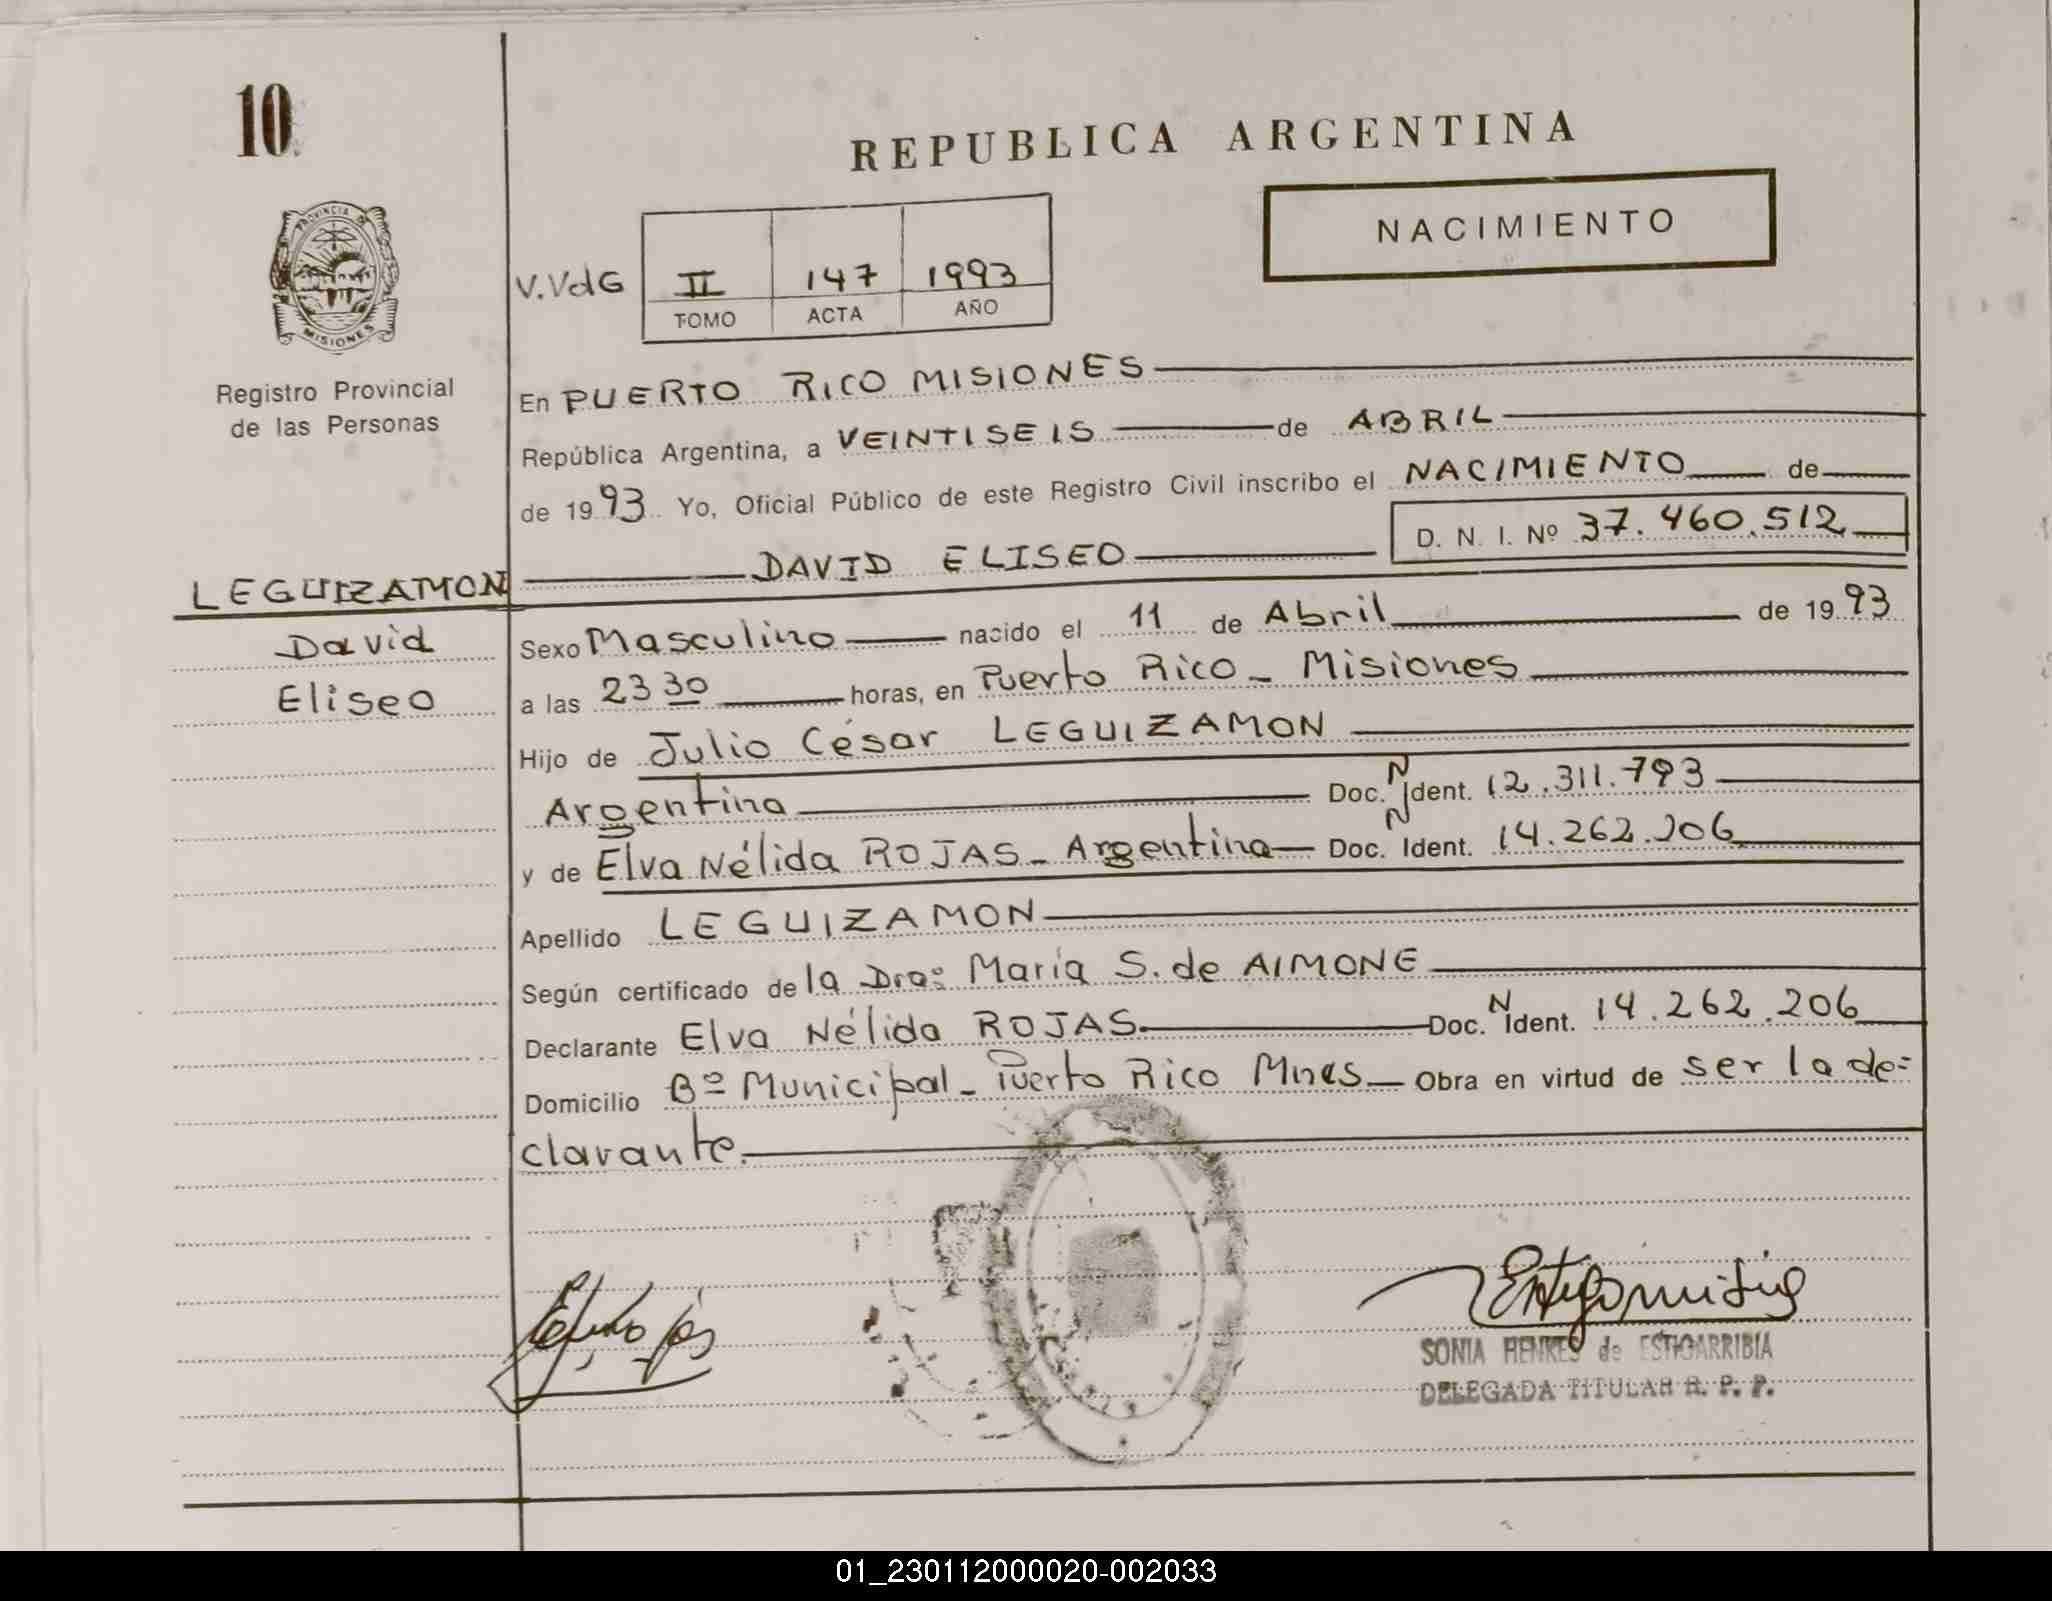 10
REPUBLICA ARGENTINA
NACIMIENTO
PROVINCIA DE
MISIONES
V.VdG II 147 1993
TOMO ACTA AÑO
Registro Provincial
de las Personas
En PUERTO RICO MISIONES
República Argentina, a VEINTISEIS de ABRIL
de 1993 Yo, Oficial Público de este Registro Civil inscribo el NACIMIENTO de
D. N. I. Nº 37.460.512
LEGUIZAMON DAVID ELISEO
David
Eliseo
Sexo Masculino nacido el 11 de Abril de 1993
a las 23 30 horas, en Puerto Rico - Misiones
Hijo de Julio César LEGUIZAMON
Argentina Doc. N Ident. 12.311.793
y de Elva Nélida ROJAS - Argentina Doc. N Ident. 14.262.206
Apellido LEGUIZAMON
Según certificado de la Dra: María S. de AIMONE
Declarante Elva Nélida ROJAS Doc. N Ident. 14.262.206
Domicilio Bº Municipal - Puerto Rico Mnes - Obra en virtud de ser la de=
clarante.
SONIA HENKES de ESTIGARRIBIA
DELEGADA TITULAR R. P. P.
01_230112000020-002033